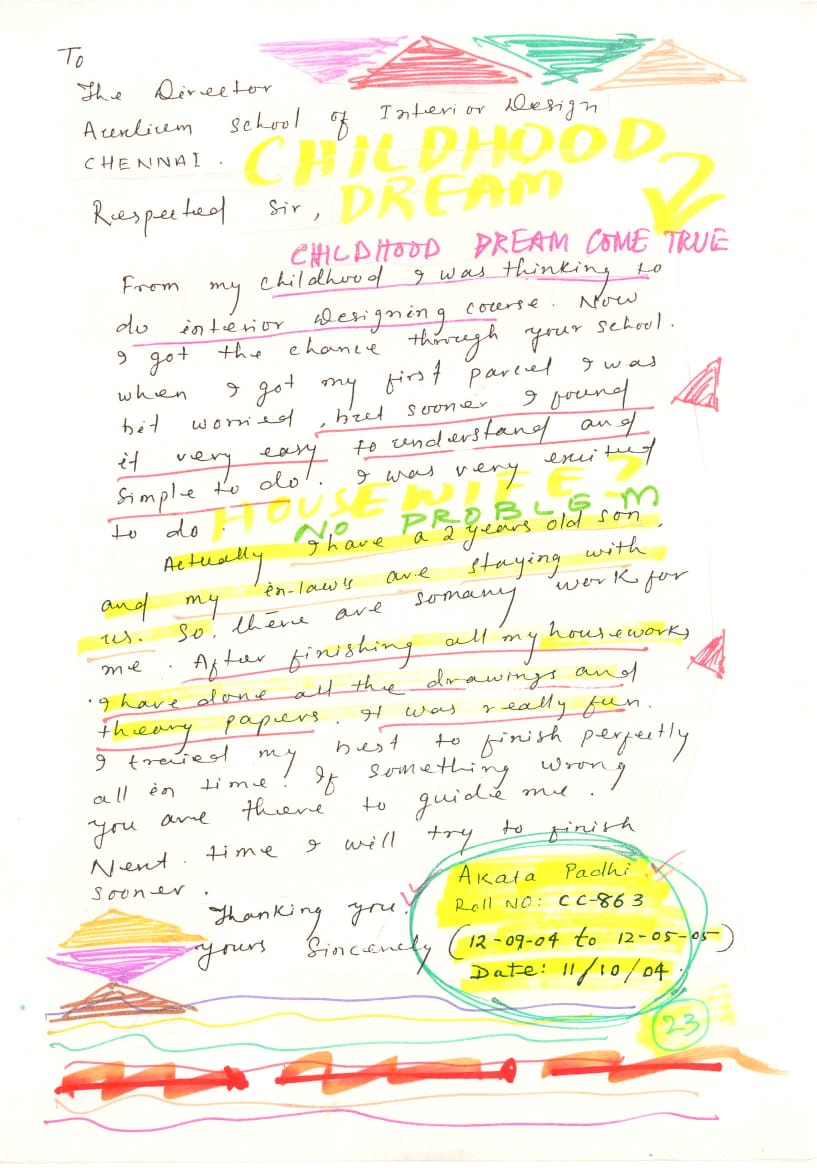 To
The Director
Aurelium School of Interior Design
CHENNAI.
CHILDHOOD
DREAM
Respected Sir,
CHILDHOOD DREAM COME TRUE
From my childhood I was thinking to
do interior Designing course. Now
I got the chance through your school.
when I got my first parcel I was
bit worried, but sooner I found
it very easy to understand and
simple to do. I was very excited
to do.
HOUSEWIFE?
NO PROBLEM
Actually I have a 2 years old son,
and my in-laws are staying with
us. So, there are somany work for
me. After finishing all my houseworks
I have done all the drawings and
theory papers. It was really fun.
I traied my best to finish perfectly
all in time. If something wrong
you are there to guide me.
Next time I will try to finish
sooner.
Thanking you.
Yours Sincerely
Akata Padhi
Roll NO: CC-863
(12-09-04 to 12-05-05)
Date: 11/10/04.
23